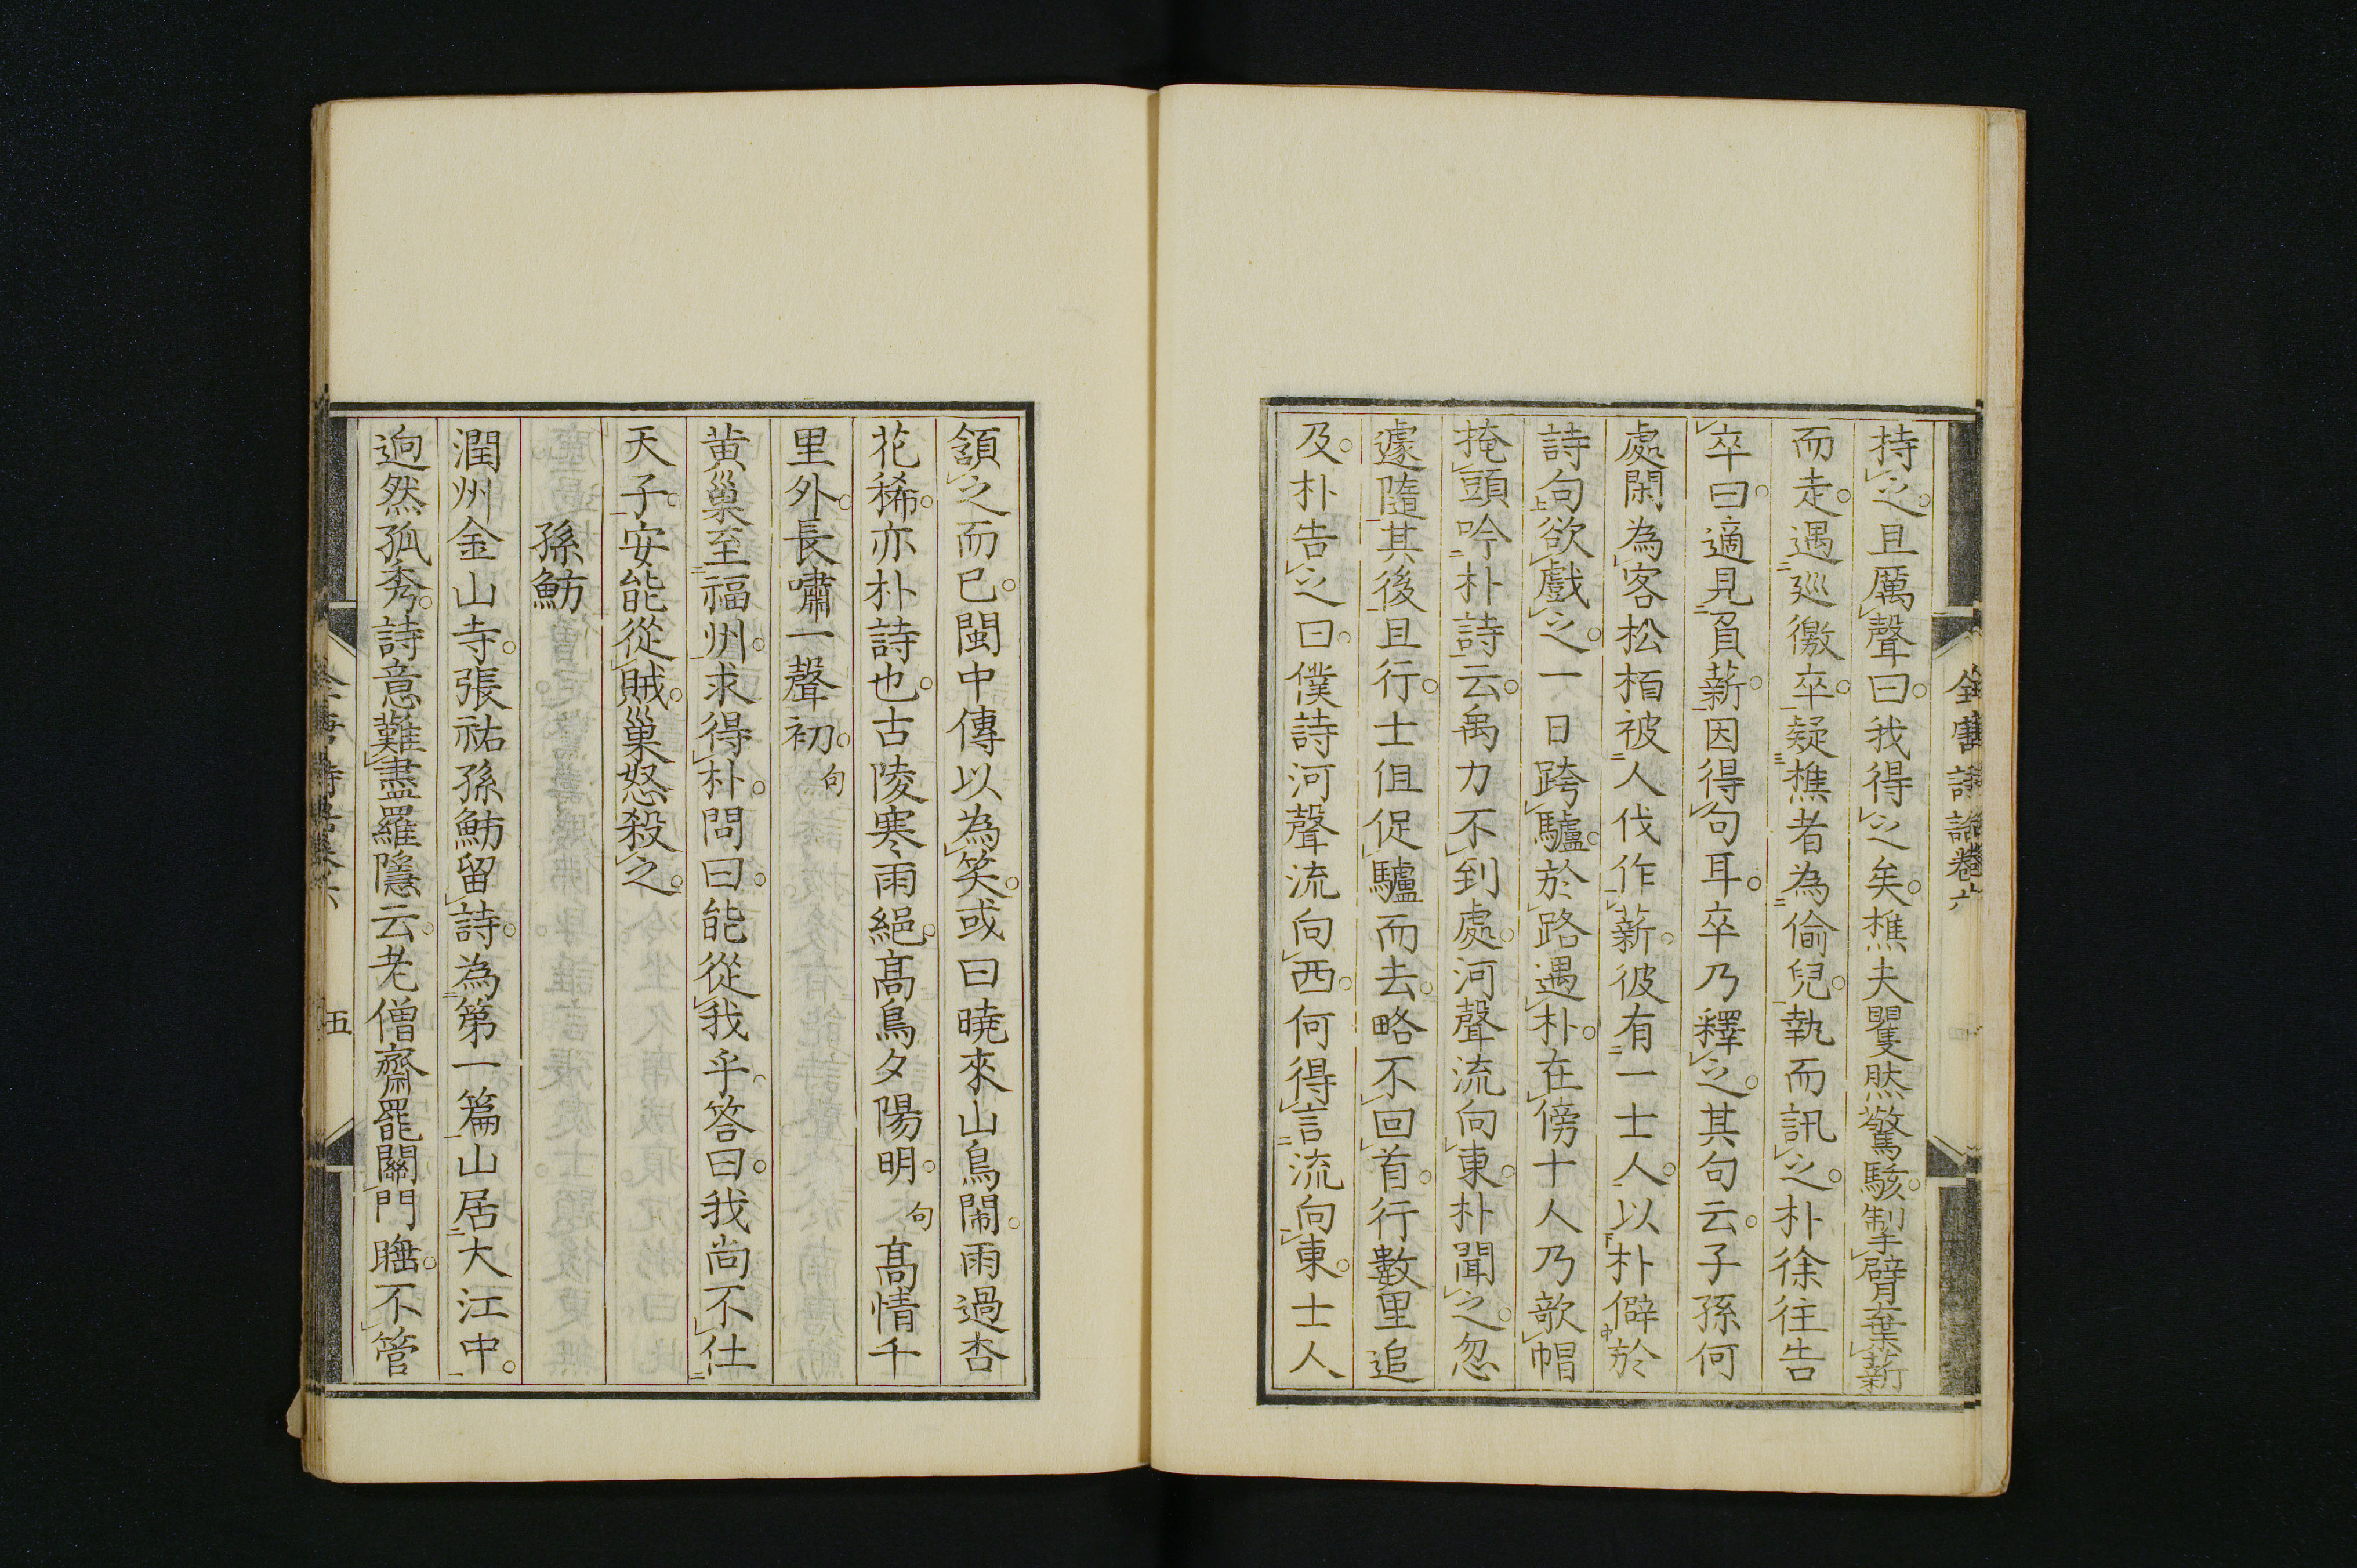 全唐詩話卷六
持之且厲聲曰我得之矣樵夫矍然驚駭掣臂棄薪
而走遇廵徼卒疑樵者為偷兒執而訊之朴徐往告
卒曰適見負薪因得句耳卒乃釋之其句云子孫何
處閑為客松栢被人伐作薪彼有一士人以朴僻於
詩句欲戲之一日跨驢於路遇朴在傍十人乃欹帽
掩頭吟朴詩云禹力不到處河聲流向東朴聞之忽
遽隨其後且行士但促驢而去略不回首行數里追
及朴告之曰僕詩河聲流向西何得言流向東士人
頷之而已閩中傳以為笑或曰曉來山鳥鬧雨過杏
花稀亦朴詩也古陵寒雨絕高鳥夕陽明句高情千
里外長嘯一聲初句
黄巢至福州求得朴問曰能從我乎答曰我尚不仕
天子安能從賊巢怒殺之
孫魴
潤州金山寺張祐孫魴留詩為第一篇山居大江中
逈然孤秀詩意難盡羅隱云老僧齋罷關門睡不管
五